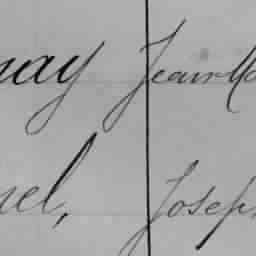 nay Jean
nel, Joseph